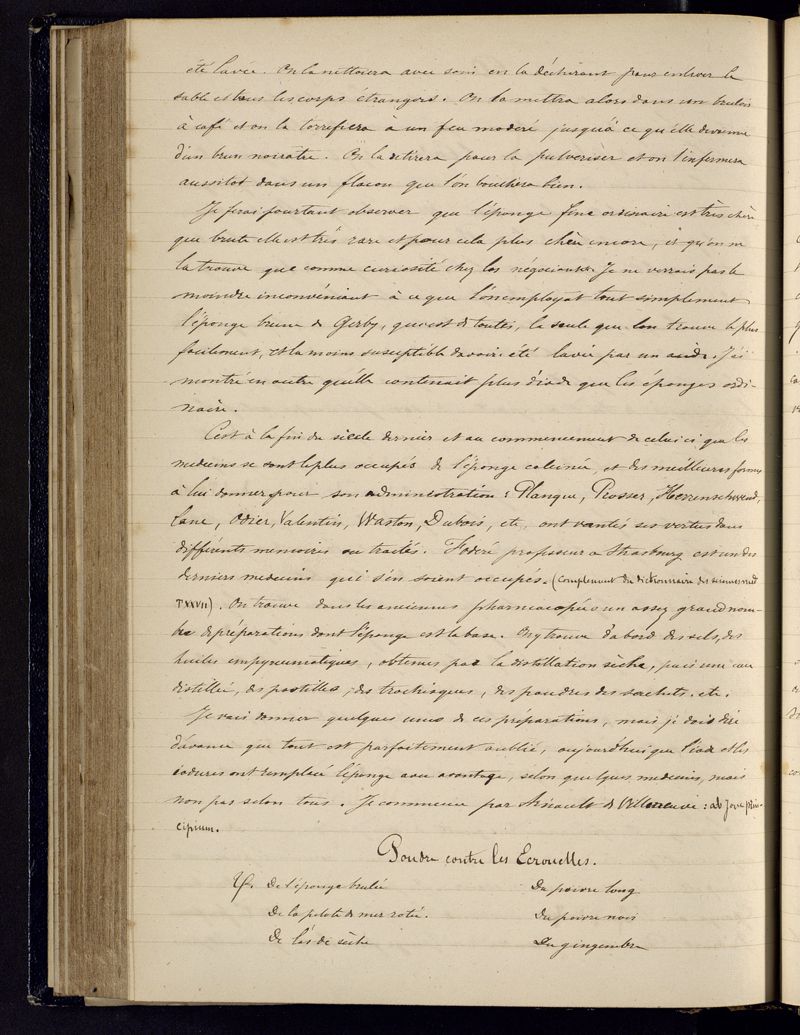 été lavée. On la nettoiera avec soin en la déchirant pour enlever le
sable et tous les corps étrangers. On la mettra alors dans un bruloir
à café et on la torrefiera à un feu modéré jusqu'à ce qu'elle devienne
d'un brun noiratre. On la retirera pour la pulveriser et on l'enfermera
aussitot dans un flacon que l'on bouchera bien.
Je ferai pourtant observer que l'éponge fine ordinaire est très chère
que brute elle est très rare et pour cela plus chère encore, et qu'on ne
la trouve que comme curiosité chez les négociants. Je ne verrais pas le
moindre inconvéniant à ce que l'on employat tout simplement
l'éponge brune de Gerby, qui est de toutes, la seule que l'on trouve le plus
facilement, et la moins susceptible d'avoir été lavée par un acide. J'ai
montré en outre qu'elle contenait plus d'iode que les éponges ordi-
naire.
C'est à la fin du siecle dernier et au commencement de celui ci que les
medecins se sont le plus occupés de l'éponge calcinée, et des meilleures formes
à lui donner pour son administration: Planque, Prosser, Herrenschwend,
Lane, Odier, Valentin, Waston, Dubois, etc, ont vantés ses vertus dans
différents memoires ou traités. Foderé professeur a Strasbourg est un des
derniers medecins qui s'en soient occupés. (Complement du dictionnaire des sciences med
TXXVII). On trouve dans les anciennes pharmacopées un assez grand nom-
bre de préparations dont l'éponge est la base. On y trouve d'abord des sels, des
huiles empyreumatiques, obtenues par la distillation sèche, puis une eau
distillée, des pastilles, des trochisques, des poudres des sachets. etc.
Je vais donner quelques unes de ces préparations, mais je dois dire
d'avance que tout est parfaitement oublié, aujourd'hui que l'iode et les
iodures ont remplacé l'éponge avec avantage, selon quelques medecins, mais
non pas selon tous. Je commence par Arnault de Villeneuve: ab Jove prin-
cipium.
Poudre contre les Ecrouelles.
♃. De l'éponge brulée Du poivre long
De la pelote de mer rotie. Du poivre noir
De l'os de sèche Du gingembre